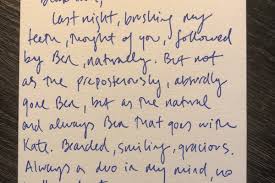 last night, brushing my
teeth, thought of you, followed
by Ben, naturally. But not
as the preposterously, absurdly
gone Ben, but as the natural
and always Ben that goes with
Kate. Bearded, smiling, gracious.
Always a duo in my mind, no